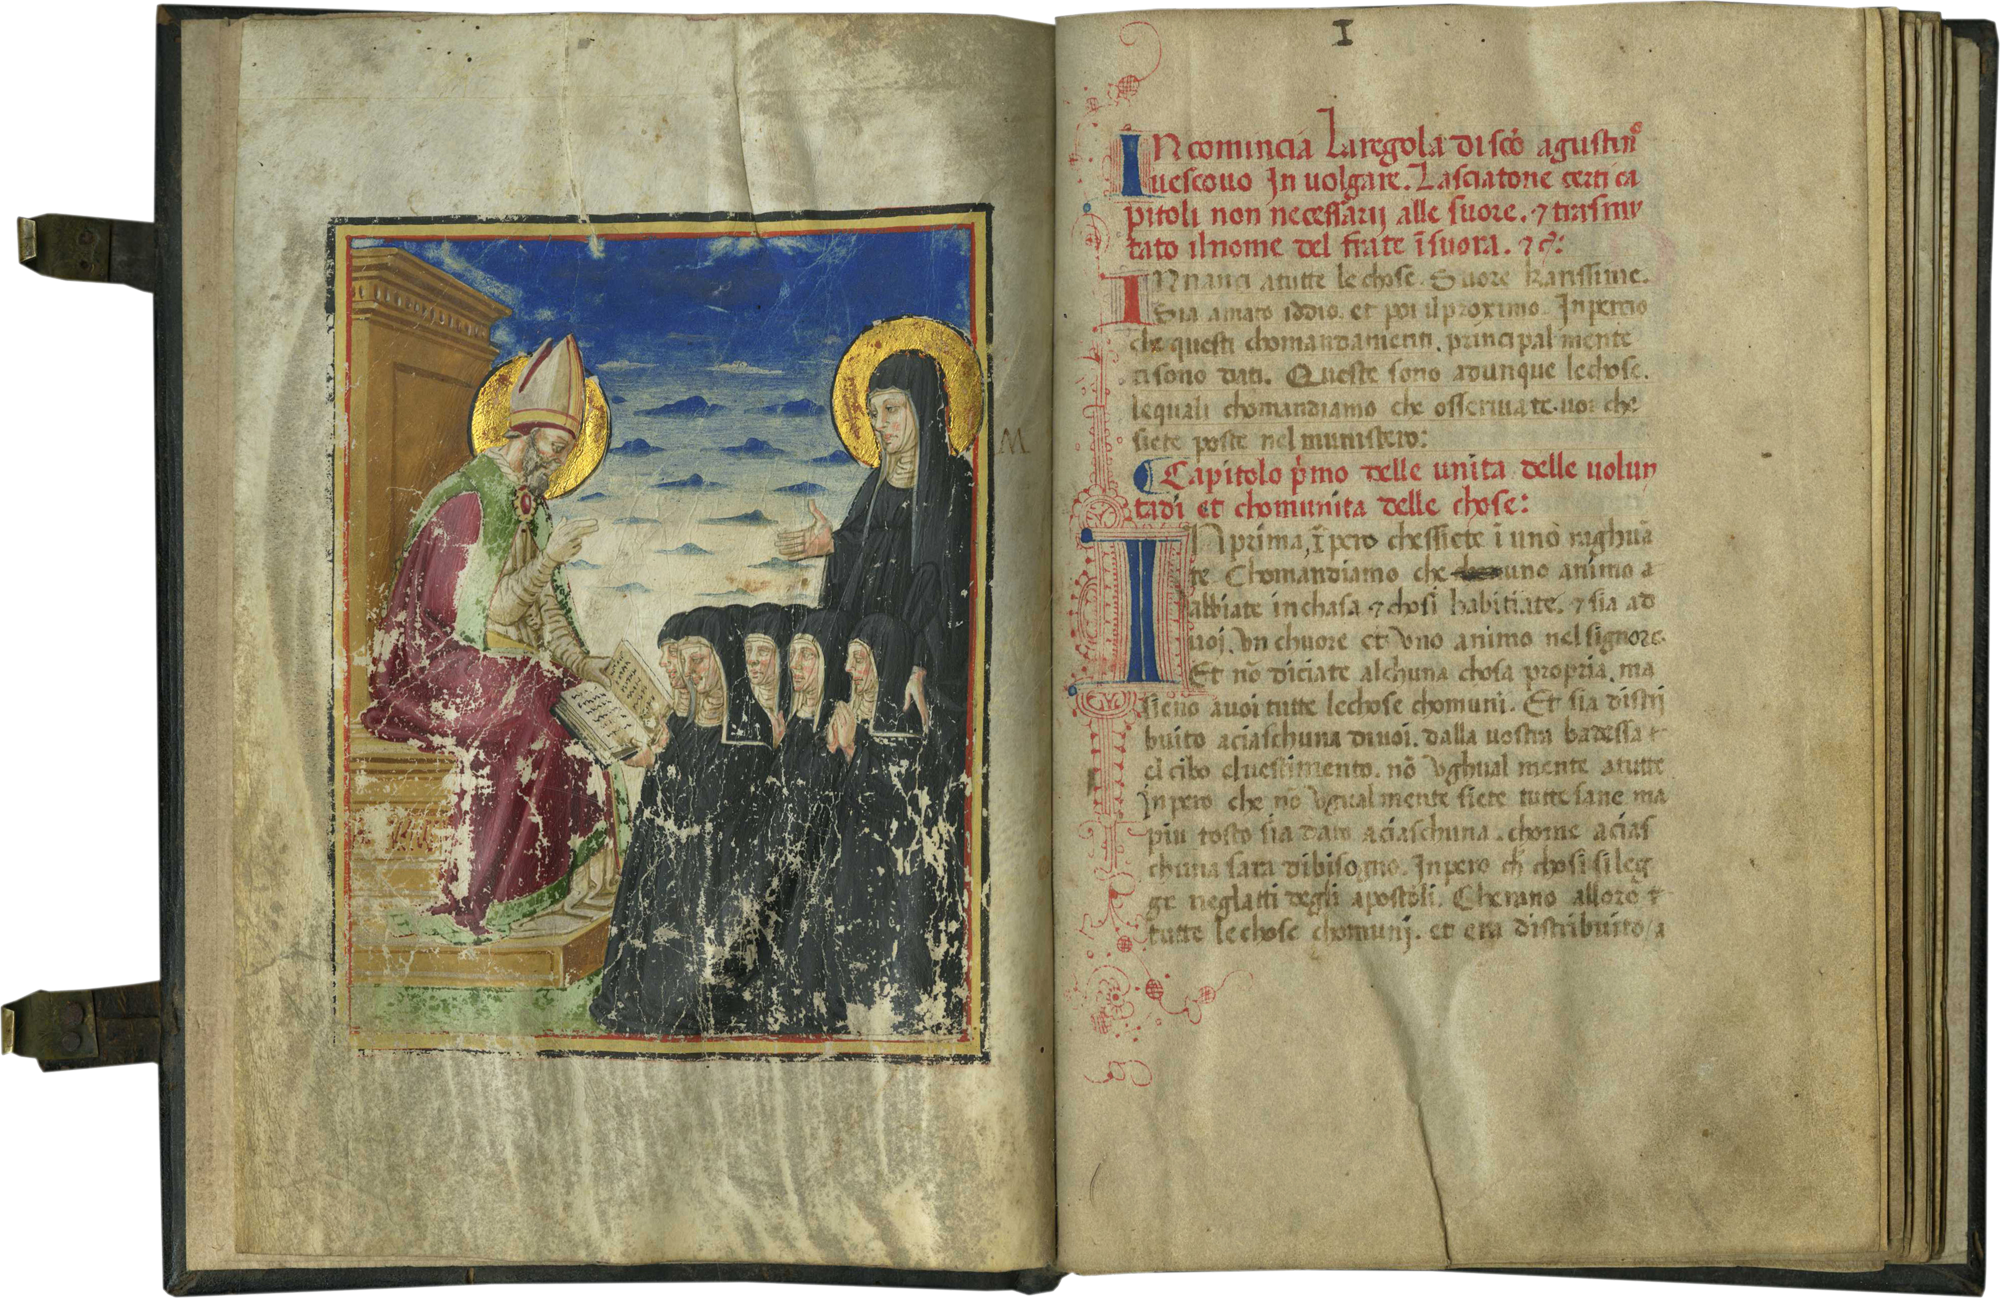 M
I
INcomincia La regola di sc̄o agustin̊
uescouo In uolgare. Lasciatone certi ca
pitoli non necessarij alle suore. ⁊ trasmu
tato il nome del frate ī suora. ⁊ c̄:
INnanci atutte le chose. Suore karissime.
Sia amato iddio. et poi il proximo. Inpercio
che questi chomandamenti. principal mente
ci sono dati. Queste sono adunque le chose.
lequali chomandiamo che osseruate. uoi che
siete poste nel munistero:
Capitolo p̄mo delle unita delle uolun
tadi et chomunita delle chose:
IN prima, īpero chessiete ī uno raghuā
te. Chomandiamo che uno animo a
abbiate in chasa ⁊ chosi habitiate. ⁊ sia ad
uoi. Vn chuore et Vno animo nel signore.
Et nō diciate alchuna chosa propria. ma
sieno auoi tutte le chose chomuni. Et sia distri
buito aciaschuna diuoi. dalla uostra badessa ⁊
el cibo eluestimento. nō Vghual mente atutte
inpero che nō Vgual mente siete tutte sane ma
piu tosto sia dato aciaschuna. chome acias
chuna sara dibisogno. Inpero ch̄ chosi si leg
ge neglatti degli apostoli. Cherano alloro ⁊
tutte le chose chomunj. et era distribuito / a